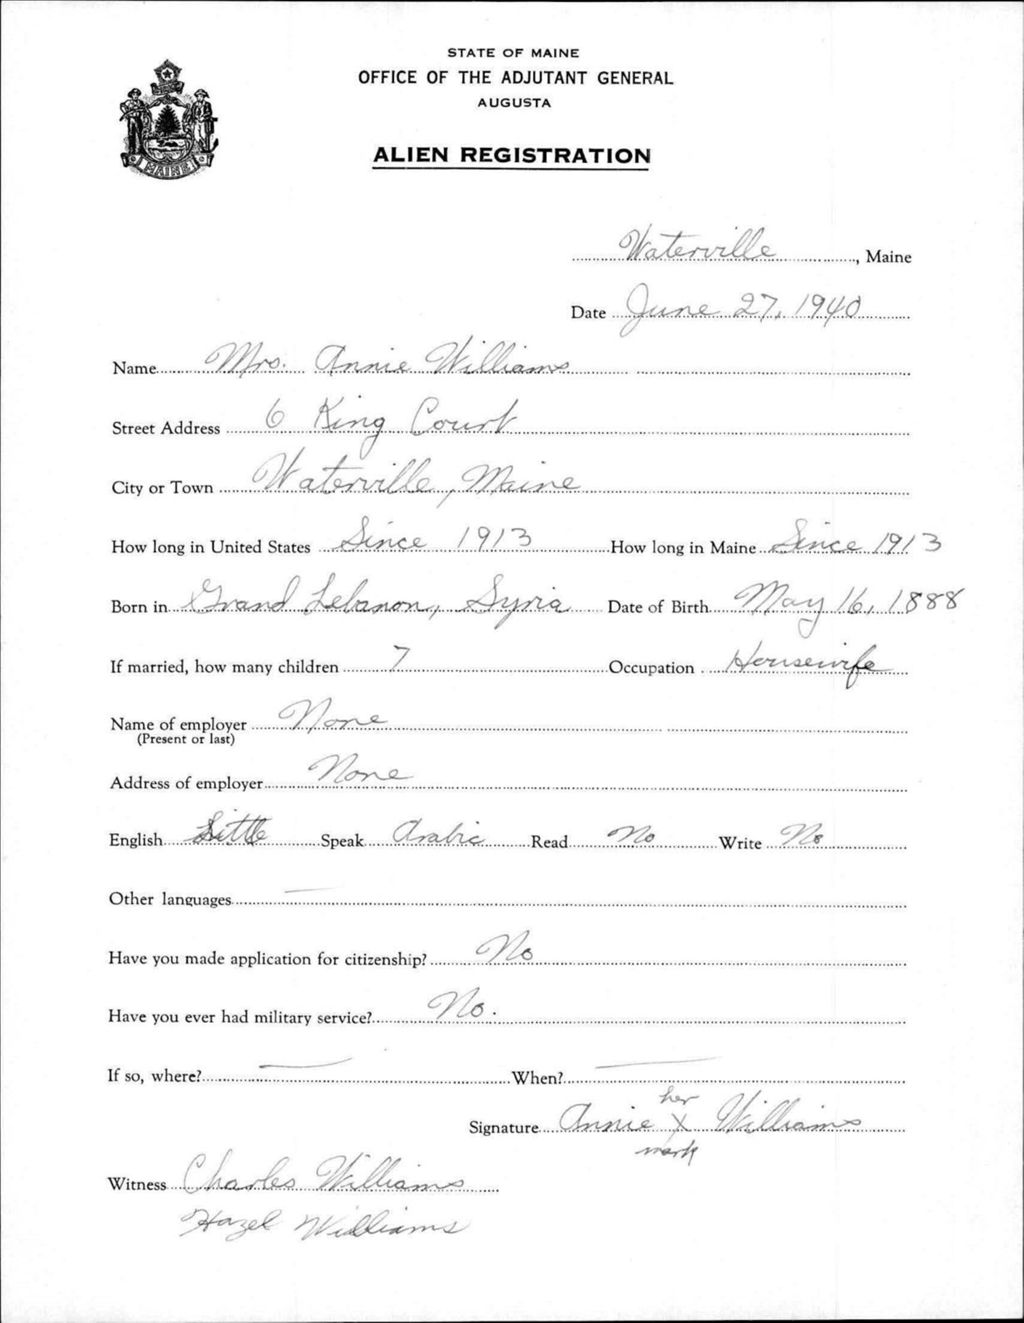 STATE OF MAINE
OFFICE OF THE ADJUTANT GENERAL
AUGUSTA
ALIEN REGISTRATION
MAINE
Waterville, Maine
Date June 27, 1940
Name Mrs. Annie Williams
Street Address 6 King Court
City or Town Waterville, Maine
How long in United States Since 1913 How long in Maine Since 1913
Born in Grand Lebanon, Syria Date of Birth May 16, 1888
If married, how many children 7 Occupation Housewife
Name of employer None
(Present or last)
Address of employer None
English Little Speak Arabic Read No Write No
Other languages —
Have you made application for citizenship? No
Have you ever had military service? No.
If so, where? — When? —
her
Signature Annie X Williams
mark
Witness Charles Williams
Hazel Williams